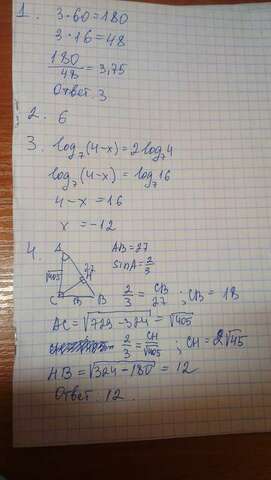 1. 3·60=180
3·16=48
180/48=3,75
Ответ 3
2. 6
3. log₇(4-x)=2log₇4
log₇(4-x)=log₇16
4-x=16
x=-12
4. A
AB=27
sinA=2/3
√405
27
H
C
B
2/3=CB/27; CB=18
AC=√729-324=√405
2/3=CH/√405; CH=2√45
HB=√324-180=12
Ответ 12.